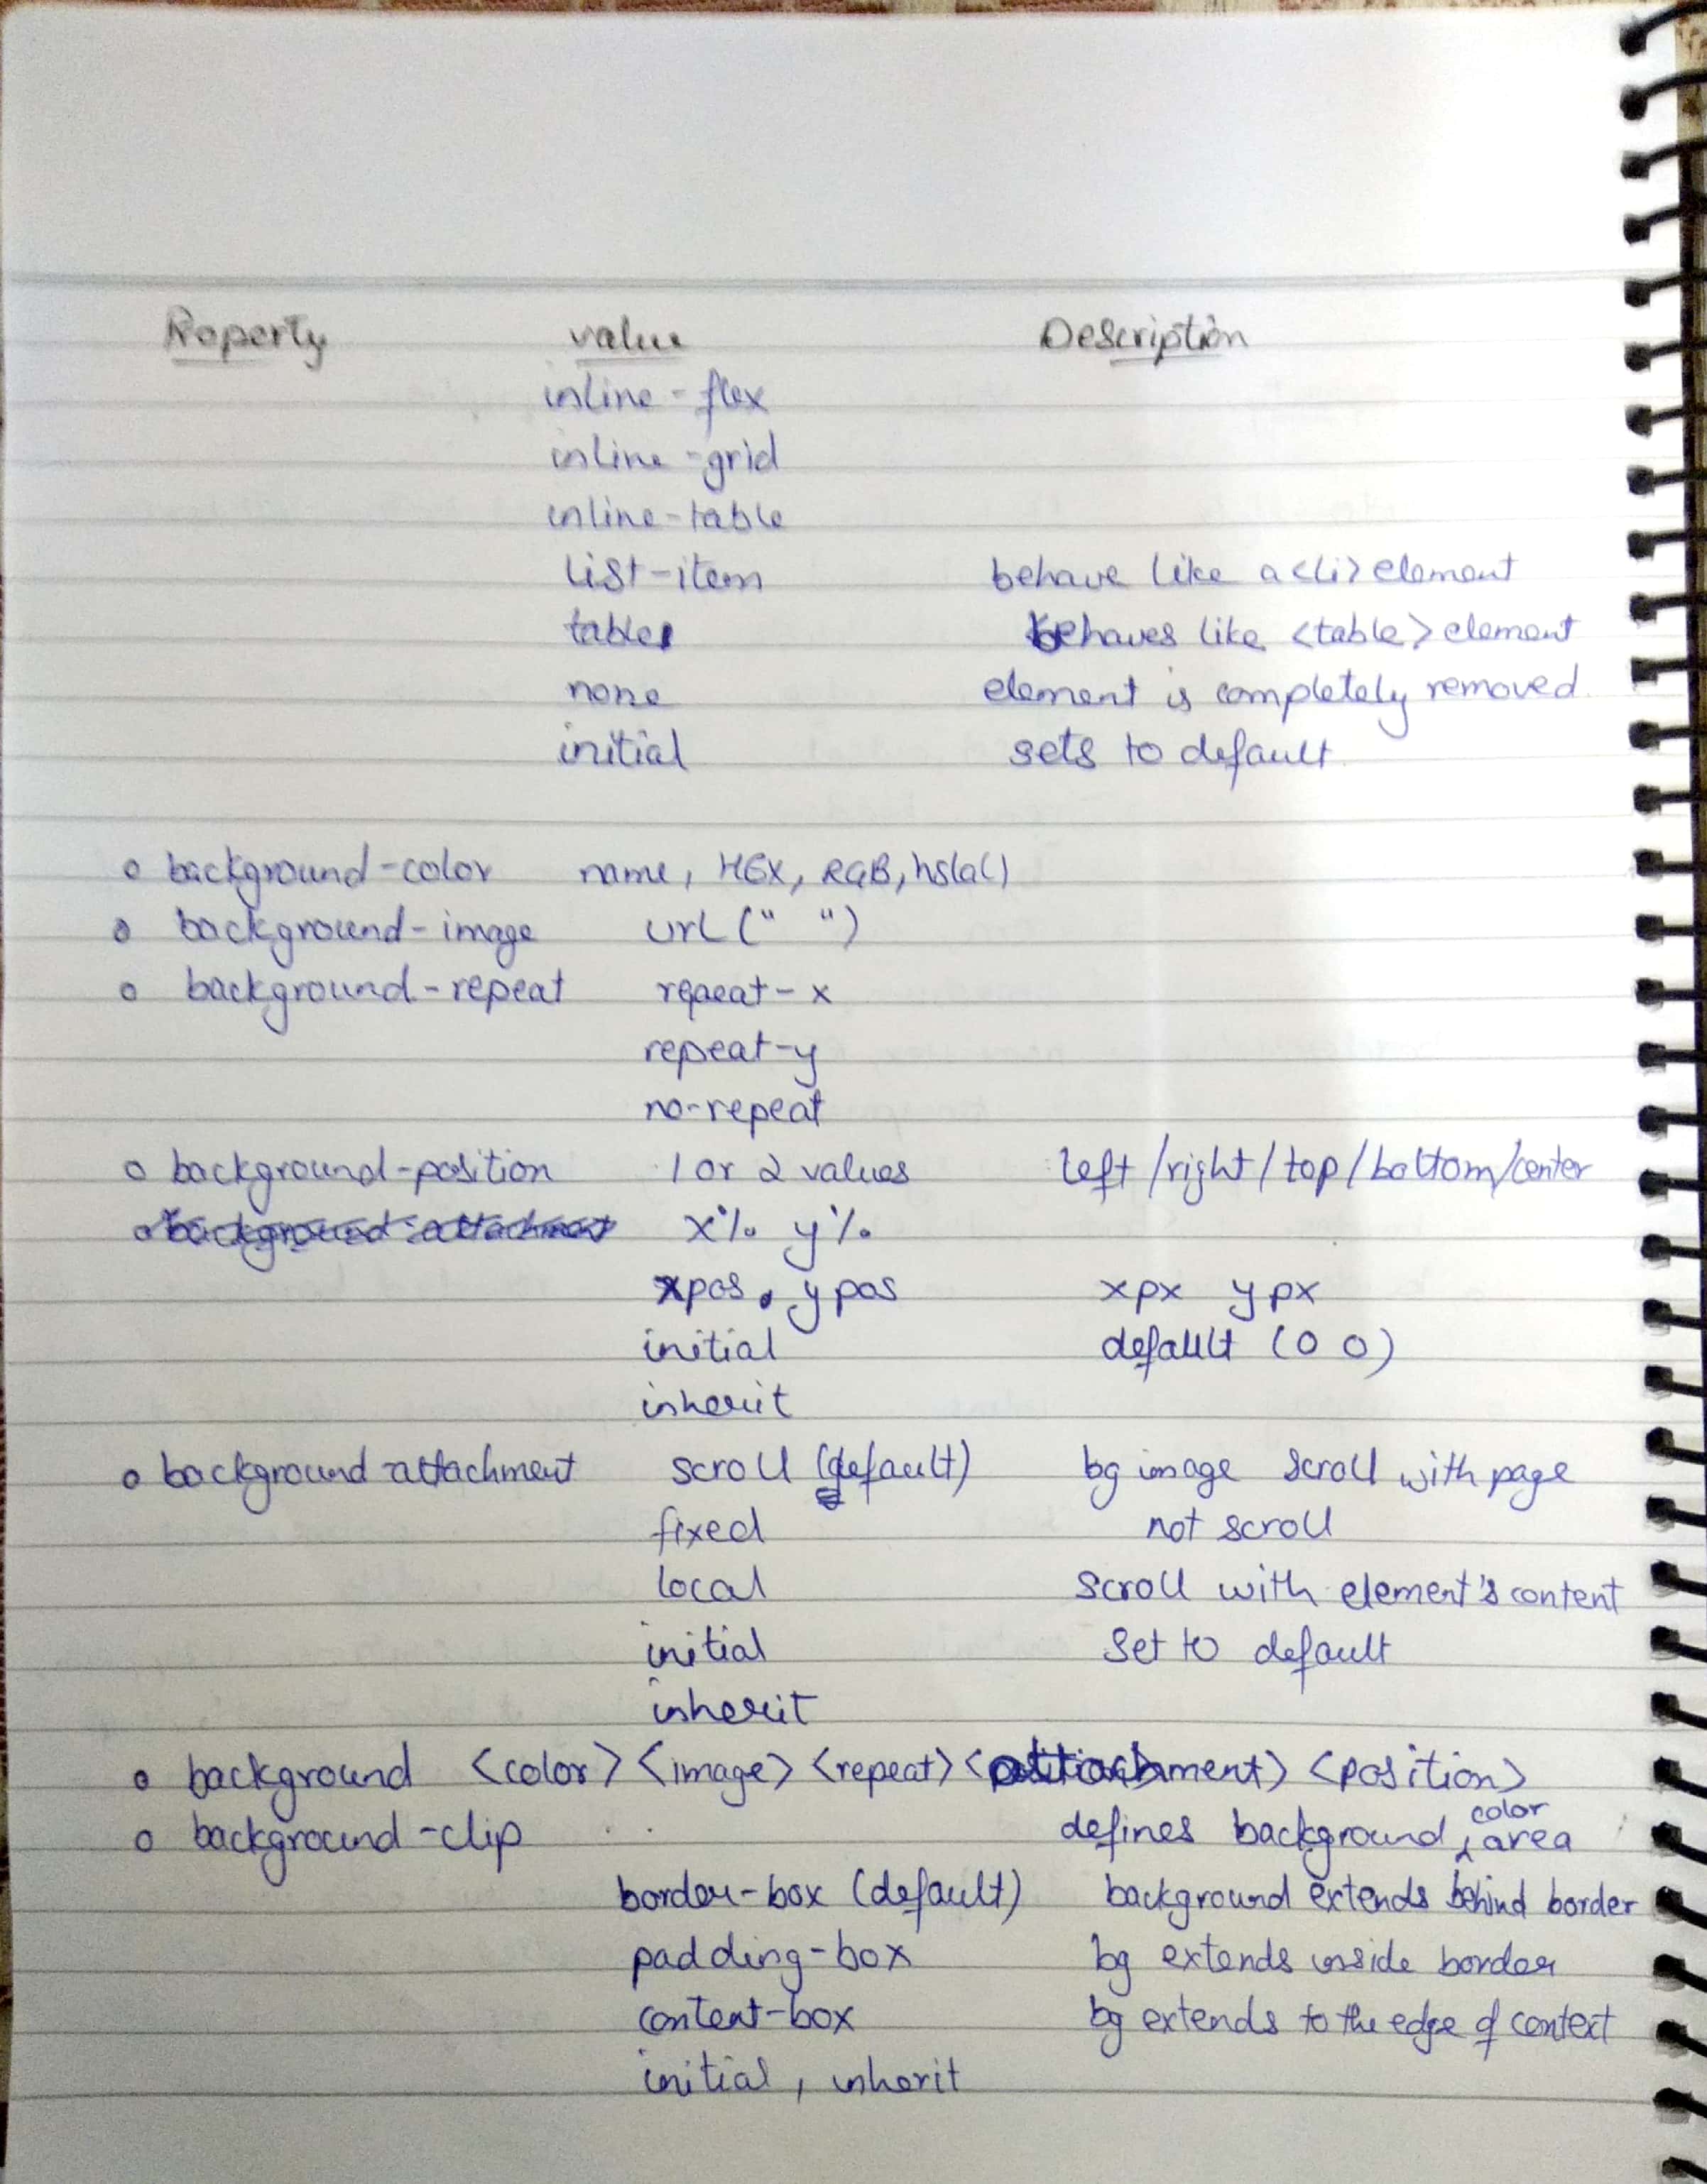 Property value Description
inline-flex
inline-grid
inline-table
list-item behave like a <li> element
table behaves like <table> element
none element is completely removed.
initial sets to default.
o background-color name, HEX, RGB, hsla()
o background-image url (" ")
o background-repeat repeat-x
repeat-y
no-repeat
o background-position 1 or 2 values left/right/top/bottom/center
o background-attachment x% y%
xpos, ypos xpx ypx
initial default (0 0)
inherit
o background attachment scroll (default) bg image scroll with page
fixed not scroll
local scroll with element's content
initial set to default
inherit
o background <color> <image> <repeat> <attachment> <position>
o background-clip defines background color area
border-box (default) background extends behind border
padding-box bg extends inside border
content-box bg extends to the edge of context
initial, inherit